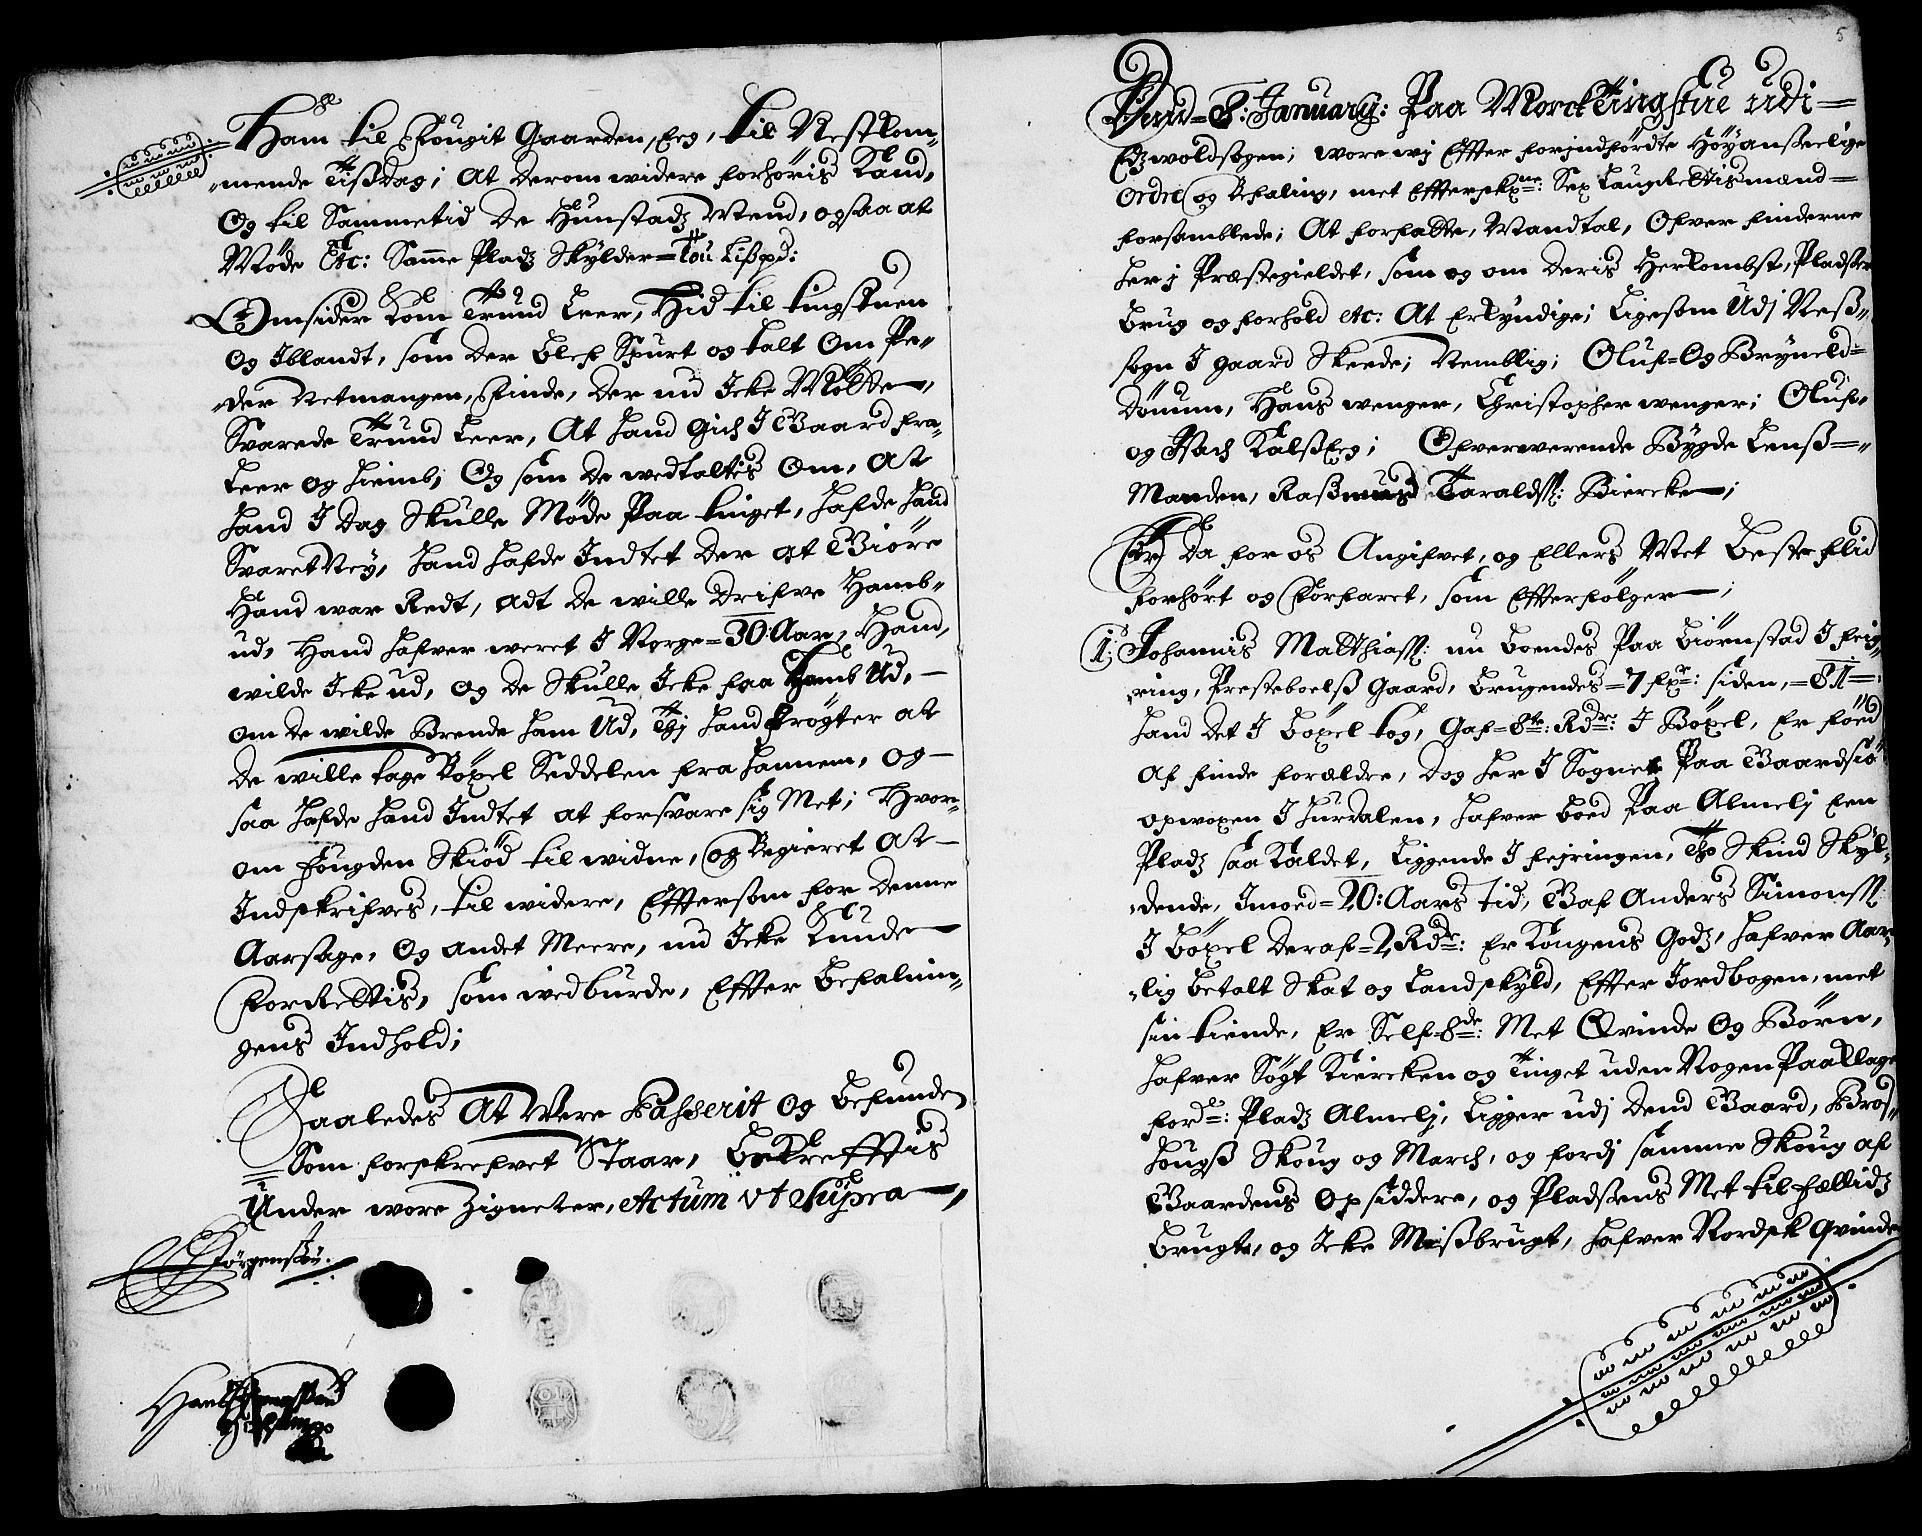 Ham til Fougit Gaarden, Eeg, til Nestkom„
„mende Tißdag; At derom widere forhöris kand,
Og til Sammetid de Hunstadz Mend, ogsaa at
Møde Etc: Samme Pladz Skylder = Tou Lißpd:
Omsider kom Trund Leer, Hid til tingstuen
og Iblandt, som der blef Spurt og talt Om Pe„
„der Netmangen, Finde, der nu Icke Mötte,
Svarede Trund Leer, At hand gich I Gaard fra„
Leer og hiemb, Og som de wedtaltis Om, At
hand I Dag Skulle Møde Paa tinget, hafde hand
Svaret Ney, hand hafde Indtet der at Giöre
Hand war Redt, adt de wille drifve Hamb„
ud, Hand hafver weret I Norge = 30: Aar, Hand,
wilde Icke ud, og de Skulle Icke faa Hamb Ud, —
om de wilde Brende ham Ud, Thj hand frögter at
de wille tage Böxel Seddelen fra hannem, og —
saa hafde hand Indtet at forsvare sig Met; Hvor„
om Fougden Skiød til widne, og Begieret At —
Indskrifves, til widere, Efftersom for denne
Aarsage, Og andet Meere, nu Icke kunde —
Forrettis, som wedburde, Effter befalin„
gens Indhold;
Saaledes At Were Passerit og befunden
Som forskrefvet Staar, bekrefftis
Under wore Zigneter, Actum ut Supra —,
5
Dend = 8: January: Paa Morck Tingstue udi =
Edzwoldsogen; wore wj Effter forjndførdte Höyanseelige
Ordre og Befaling, met Effterskne: Sex Laugrettismænd =
forsamblede; At forfatte, Mandtal, Ofver Finderne
her j Præstegieldet, som og om deris Herkombst, Pladtzer
brug og forhold etc: At Erkyndige; Ligesom Udj Neß„
sogn I gaard Skeede; Nemblig; Oluf = Og Bryneld =
Dönum, Hans wenger, Christopher wenger; Oluf
og Isach Kalßeg; Ofverwerende Bygde Lenß = „
Manden, Raßmus Taraldss: Biercke;
Er da for os Angifvet, og Ellers Met beste flid
forhört og Forfaret, som Effterfölger;
1; Johannis Matthiass: nu boendes Paa Biörnstad I Feig„
„ring, Prestebolß Gaard, brugendes = 7 fxr: siden, = 81 =
hand det I böxel tog, Gaf = 8te: Rdr: I Böxel, Er föed
af finde forældre, dog her I Sognet Paa Gaardsiö
opwoxen I Hurdalen, hafver boed Paa Almelj Een
Pladz saa kaldet, Liggende I Fejringen, Tho Skind Skyl„
„dende, Imoed = 20: Aars tid, Gaf Anders Simonss:
I böxel deraf = 2 Rdr: Er Kongens Godz, hafver Aar„
„lig betalt Skat og Landskyld, Effter Jordbogen, met
sin tiende, Er Self = 8de: Met Qvinde Og Börn,
hafver Sögt Kiercken og Tinget uden Nogen Paaklage
forde: Pladz Almelj, Ligger udj dend Gaard, Bros„
hougß Skoug og March, og fordj samme Skoug af
Gaardens Opsiddere, og Pladsens Met til fællidz
brugt, og Icke Mißbrugt, hafver Nordsk Qvinde